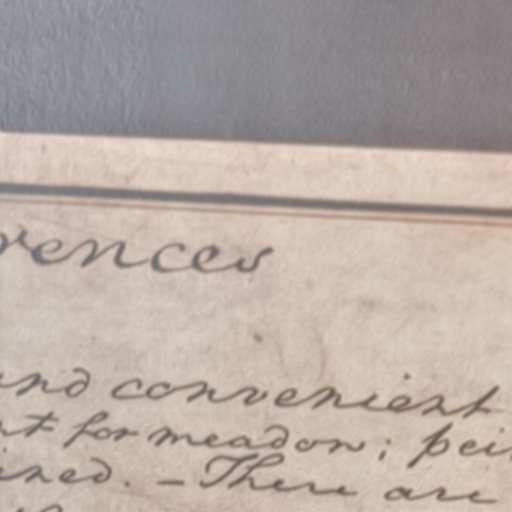 rences
and convenient
nt for meadow; bei
ined. — There are